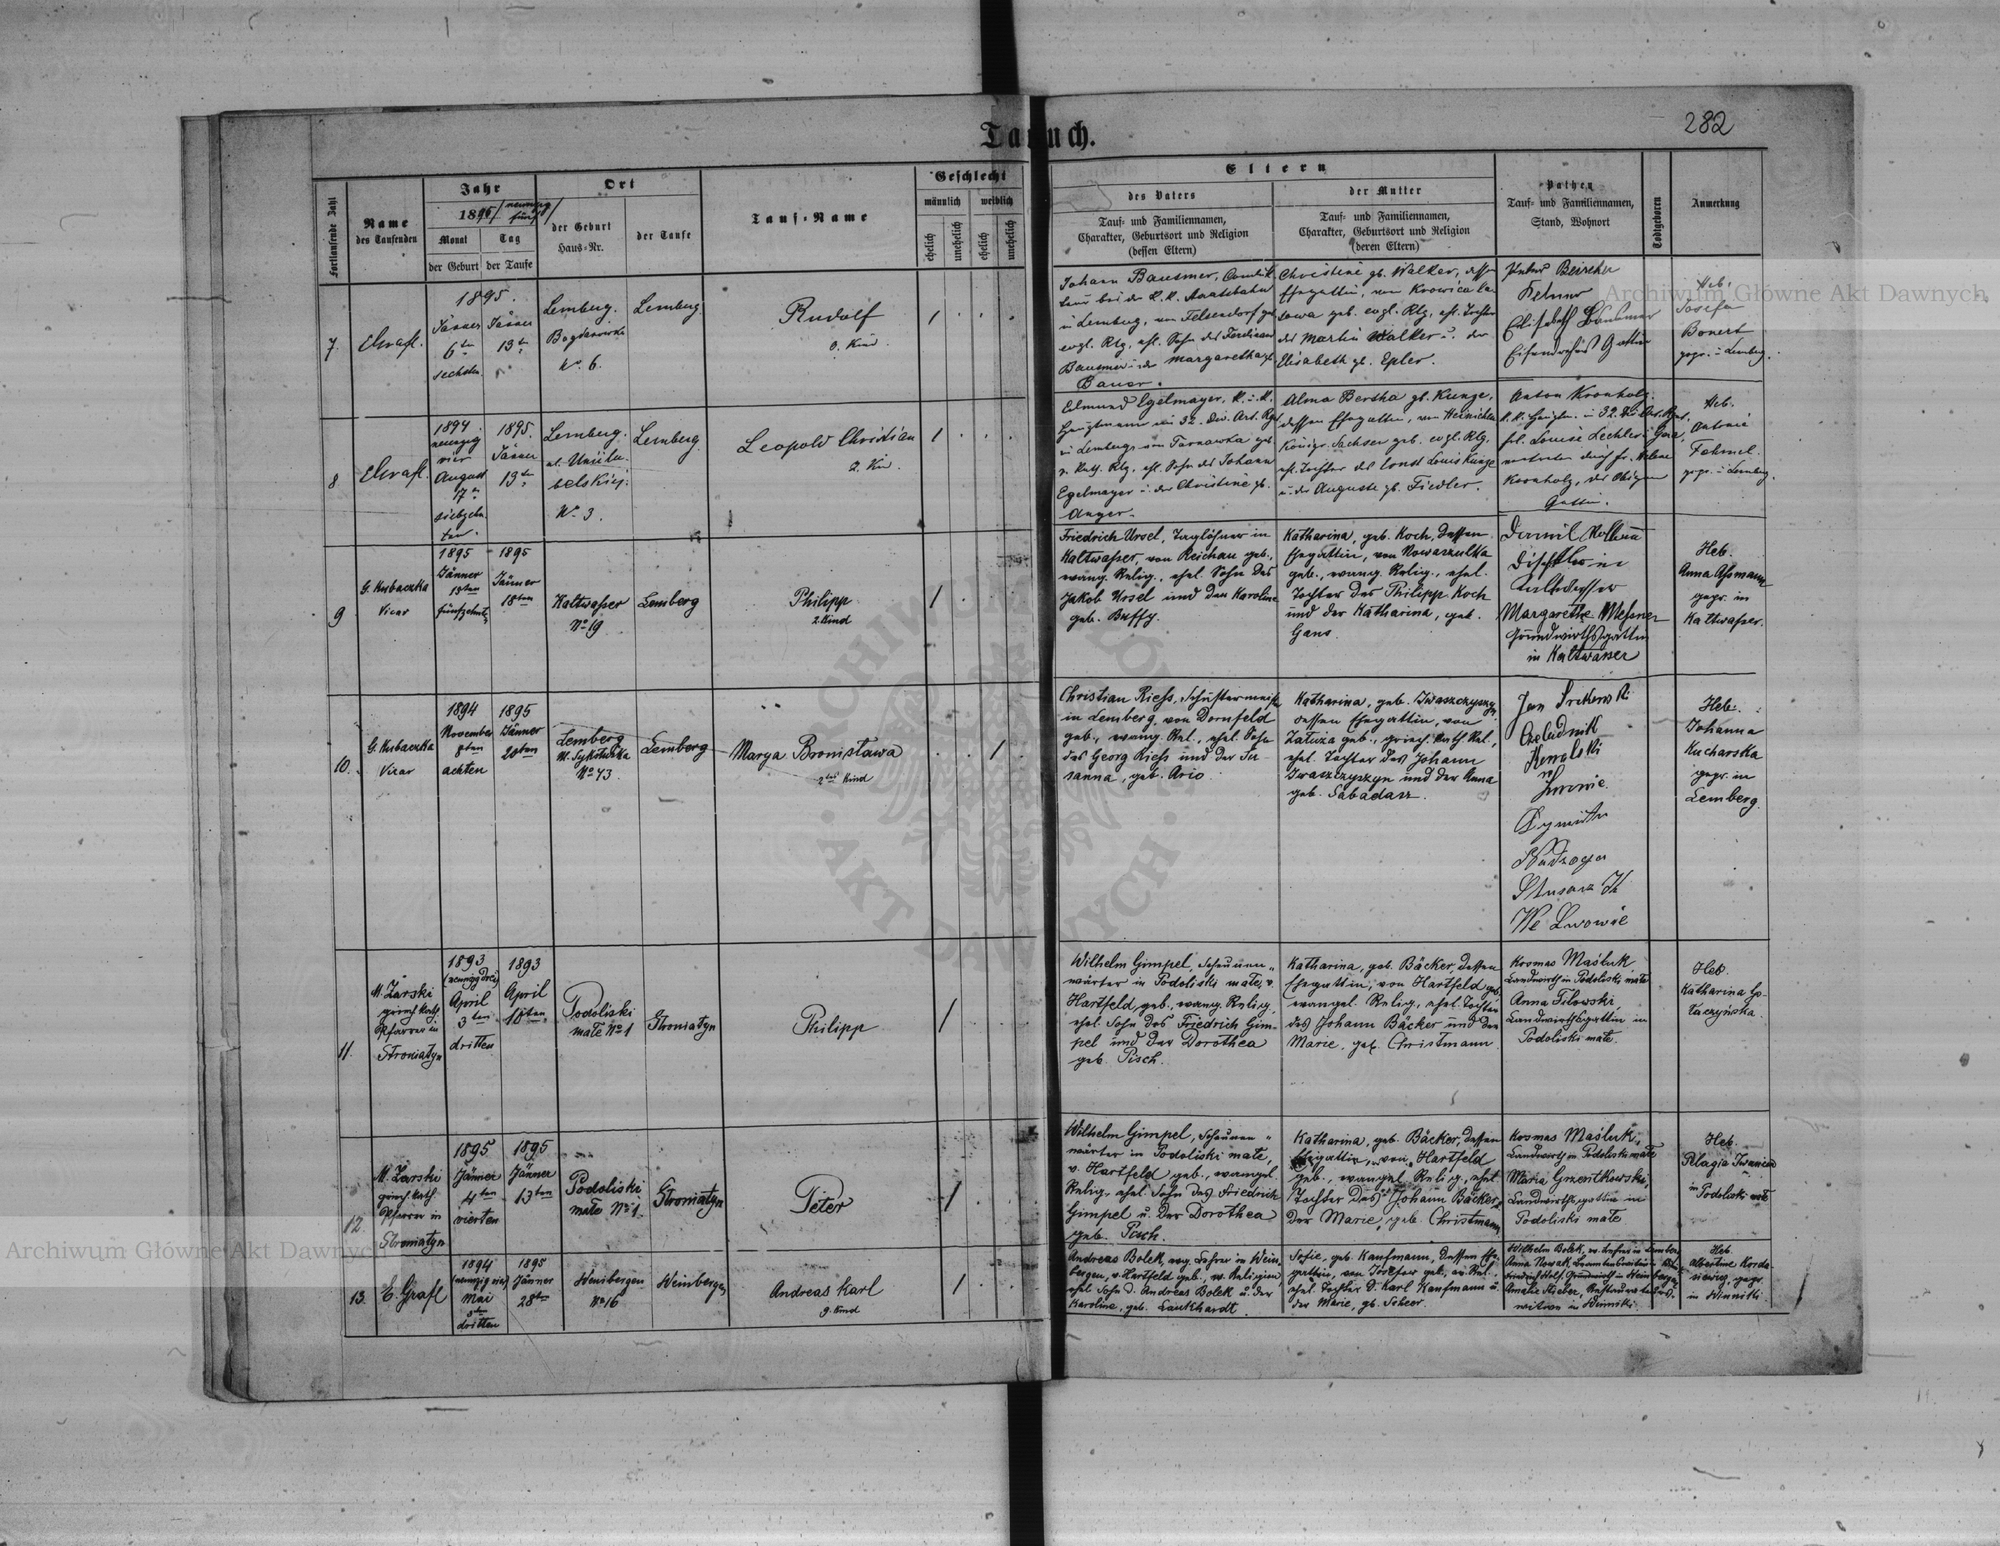 282
Taufbuch.
Fortlaufende Zahl
Name
des Taufenden
Jahr
1895/neunzig
fünf/
Monat
Tag
der Geburt
der Taufe
Ort
der Geburt
Haus-Nr.
der Taufe
Tauf-Name
Geschlecht
männlich
weiblich
ehelich
unehelich
ehelich
unehelich
Eltern
des Vaters
Tauf- und Familiennamen,
Charakter, Geburtsort und Religion
(dessen Eltern)
der Mutter
Tauf- und Familiennamen,
Charakter, Geburtsort und Religion
(deren Eltern)
Pathen
Tauf- und Familiennamen,
Stand, Wohnort
Todtgeboren
Anmerkung
7
1895.
Jänner
6ten
sechsten
Jänner
13te
Lemberg.
Bogdanówka
No. 6.
Lemberg
Rudolf
3. Kind
Johann Bausmer,
bei der K. K. Staatsbahn
in Lemberg, von
evgl. Rlg, ehl. Sohn des Ferdinand
Bausmer u. der Margaretha gb.
Bauer.
Christine gb. Walker, dessen
Ehegattin, von Krowica la-
sowa geb. evgl. Rlg, ehl. Tochter
des Martin Walker u. der
Elisabeth gb. Epler.
Elisabeth Bausmer
Heb.
Josefa
Bonert
gepr. in Lemberg.
8
1894.
neunzig
vier
August
17te
siebzehn-
ten.
1895.
Jänner
13te
Lemberg.
belskiej
No 3.
Lemberg
Leopold Christian
2. Kind.
Edmund Egelmayer, K. u. K.
Hauptmann im 32. Div. Art. Rgt
in Lemberg, von Tarnawka geb.
r. kath. Rlg, ehl. Sohn des Johann
Egelmayer u. der Christine gb.
Anger.
Alma Bertha gb. Kunze,
dessen Ehegattin, von
Königr. Sachsen geb. evgl. Rlg,
ehl. Tochter des Ernst Louis Kunze
u. der Auguste gb. Fiedler.
Anton Kronholz
K. K. Hauptm. im 32. Div. Art. Rgt,
frl. Louise Lechler
vertreten durch fr. Helene
Kronholz, der Obigen
Gattin.
Heb.
Antonie
gepr. in Lemberg.
9
G. Kubaczka
Vicar
1895
Jänner
15ten
fünfzehnten
1895
Jänner
18ten
Kaltwasser
No 19
Lemberg
Philipp
2. Kind
Friedrich Ursel, Taglöhner in
Kaltwasser, von Reichau geb.,
evang. Relig., ehel. Sohn des
Jakob Ursel und der Karoline
geb. Buffy.
Katharina, geb. Koch, dessen
Ehegattin, von
geb., evang. Relig., ehel.
Tochter des Philipp Koch
und der Katharina, geb.
Gans.
Margarethe Messner
Grundwirthsgattin
in Kaltwasser
Heb.
Anna Assmann
gepr. in
Kaltwasser.
10.
G. Kubaczka
Vicar
1894
November
8ten
achten
1895
Jänner
20ten
Lemberg
No 43.
Lemberg
Marya Bronisława
2tes Kind
Christian Riess, Schustermeister
in Lemberg, von Dornfeld
geb., evang. Rel., ehel. Sohn
des Georg Riess und der Su-
sanna, geb. Ario.
Katharina, geb. Iwaszczyszyn,
dessen Ehegattin, von
Załuża geb., griech. kath. Rel.,
ehel. Tochter des Johann
Iwaszczyszyn und der Anna
geb. Sabadasz.
Jan
Czeladnik
Kowalski
We Lwowie
Heb.
Johanna
Kucharska
gepr. in
Lemberg.
11.
M. Żarski
griech. kath.
Pfarrer in
Stroniatyn
1893
(neunzig drei)
April
3ten
dritten
1893
April
10ten
Podoliski
małe No 1
Stroniatyn
Philipp
Wilhelm Gimpel, Scheunen-
wärter in Podoliski małe, v.
Hartfeld, geb., evang. Relig.,
ehel. Sohn des Friedrich Gim-
pel und der Dorothea
geb. Pisch.
Katharina, geb. Bäcker, dessen
Ehegattin, von Hartfeld geb.,
evangel. Relig., ehel. Tochter
des Johann Bäcker und der
Marie, geb. Christmann.
Kosmas Maśluk
Landwirth in Podoliski małe
Anna
Landwirthsgattin in
Podoliski małe.
Heb.
Katharina
12.
M. Żarski
griech. kath.
Pfarrer in
Stroniatyn
1895
Jänner
4ten
vierten
1895
Jänner
13ten
Podoliski
małe No 1
Stroniatyn
Peter
Wilhelm Gimpel, Scheunen-
wärter in Podoliski małe,
v. Hartfeld geb., evangel.
Relig., ehel. Sohn des Friedrich
Gimpel u. der Dorothea
geb. Pisch.
Katharina, geb. Bäcker, dessen
Ehegattin, von Hartfeld
geb., evangel. Relig., ehel.
Tochter des Johann Bäcker u.
der Marie, geb. Christmann.
Kosmas Maśluk,
Landwirth in Podoliski małe
Maria
Landwirthsgattin in
Podoliski małe
Heb.
Pelagia
in Podoliski małe
13.
E. Grafl
1894
(neunzig vier)
Mai
3ten
dritten
1895
Jänner
28ten
Weinbergen
No 16
Weinbergen
Andreas Karl
9. Kind
Andreas Bolek, evg. Lehrer in Wein-
bergen, v. Hartfeld geb., ev. Religion
ehel. Sohn d. Andreas Bolek u. der
Karoline, geb. Laukhardt.
Sofie, geb. Kaufmann, dessen Ehe-
gattin, von Josefow geb., ev. Rel.,
ehel. Tochter d. Karl Kaufmann u.
der Marie, gb. Scheer.
Wilhelm Bolek, ev. Lehrer in Lemberg,
Anna Nowak
Amalie Stieber,
witwe in Winniki.
Heb.
Albertine
gepr.
in Winniki.
Archiwum Główne Akt Dawnych
Archiwum Główne Akt Dawnych